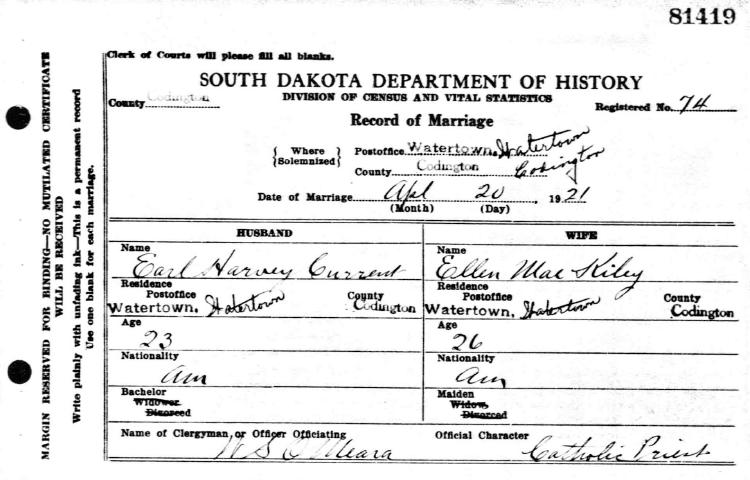 81419
Clerk of Courts will please fill all blanks.
SOUTH DAKOTA DEPARTMENT OF HISTORY
County Codington
DIVISION OF CENSUS AND VITAL STATISTICS
Registered No. 74
Record of Marriage
{ Where Solemnized }
Postoffice Watertown, Watertown
County Codington Codington
Date of Marriage Apl 20, 1921
(Month) (Day)
HUSBAND
Name
Earl Harvey Current
Residence
Postoffice County
Watertown, Watertown Codington
Age
23
Nationality
Am
Bachelor
Widower
Divorced
WIFE
Name
Ellen Mae Kiley
Residence
Postoffice County
Watertown, Watertown Codington
Age
26
Nationality
Am
Maiden
Widow
Divorced
Name of Clergyman, or Officer Officiating
W S O'Meara
Official Character
Catholic Priest
MARGIN RESERVED FOR BINDING—NO MUTILATED CERTIFICATE
WILL BE RECEIVED
Write plainly with unfading ink—This is a permanent record
Use one blank for each marriage.